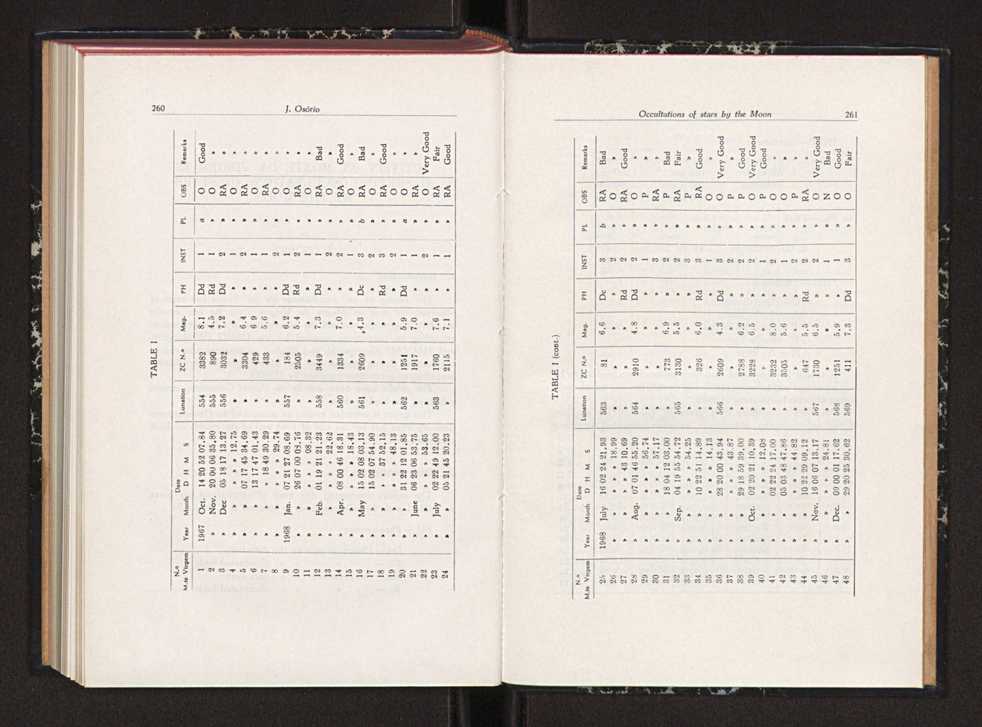 260
J. Osório
TABLE I
N.º M.te Virgem Year Month Date D H M S Lunation ZC N.º Mag. PH INST PL OBS Remarks
1 1967 Oct. 14 20 52 07,84 554 3382 8.1 Dd 1 a O Good
2 » Nov. 20 00 06 35,80 555 890 4.5 Rd 1 » O »
3 » Dec 05 18 17 13.27 556 3032 7.2 Dd 2 » RA »
4 » » » » » 12,75 » » » » 1 » O »
5 » » 07 17 45 34,69 » 3304 6.4 » 2 » RA »
6 » » 13 17 47 01,43 » 429 6.9 » 1 » O »
7 » » » 18 49 30,29 » 433 5.6 » 1 » RA »
8 » » » » » 29,74 » » » » 2 » O »
9 1968 Jan. 07 21 27 08,69 557 184 6.2 Dd 1 » O »
10 » » 26 07 00 08,76 » 2505 5.4 Rd 2 » RA »
11 » » » » » 08,32 » » » » 1 » O »
12 » Feb. 01 19 21 21,23 558 3449 7.3 Dd 1 » RA Bad
13 » » » » » 22,62 » » » » 2 » O »
14 » Apr. 08 00 46 18,31 560 1334 7.0 » 2 » RA Good
15 » » » » » 18,43 » » » » 1 » O »
16 » May 15 02 08 03,13 561 2609 4.3 Dc 3 b RA Bad
17 » » 15 02 07 54,90 » » » » 2 » O »
18 » » » » 37 52,15 » » » Rd 3 » RA Good
19 » » » » » 48,13 » » » » 2 » O »
20 » » 31 22 12 01,85 562 1251 5.9 Dd 1 a O »
21 » June 06 23 06 53,75 » 1917 7.0 » 1 » RA »
22 » » » » » 53,65 » » » » 2 » O Very Good
23 » July 02 22 49 12,00 563 1760 7.6 » 1 » RA Fair
24 » » 05 21 45 20,23 » 2115 7.1 » 1 » RA Good
Occultations of stars by the Moon
261
TABLE I (cont.)
N.º M.te Virgem Year Month Date D H M S Lunation ZC N.º Mag. PH INST PL OBS Remarks
25 1968 July 16 02 24 21,93 563 81 6.6 Dc 3 b RA Bad
26 » » » » » 18,99 » » » » 2 » O »
27 » » » » 43 10,69 » » » Rd 2 » RA Good
28 » Aug. 07 01 46 55,20 564 2910 4.8 Dd 2 » O »
29 » » » » » 56,74 » » » » 1 » P »
30 » » » » » 57,17 » » » » 3 » RA »
31 » » 18 04 12 03,00 » 773 6.9 » 2 » P Bad
32 » Sep. 04 19 55 54,72 565 3130 5.5 » 2 » RA Fair
33 » » » » » 54,25 » » » » 3 » P »
34 » » 10 22 51 14,89 » 326 6.0 Rd 3 » RA Good
35 » » » » » 14,13 » » » » 1 » O »
36 » » 28 20 00 43,94 566 2609 4.3 Dd 3 » O Very Good
37 » » » » » 43,87 » » » » 2 » P »
38 » » 29 18 59 39,00 » 2788 6.2 » 2 » P Good
39 » Oct. 02 20 21 10,39 » 3228 6.5 » 2 » O Very Good
40 » » » » » 12,08 » » » » 1 » P Good
41 » » 02 22 24 17,00 » 3232 8.0 » 2 » O »
42 » » 05 03 48 47,86 » 3505 5.6 » 1 » O »
43 » » » » » 44,82 » » » » 2 » P »
44 » » 10 22 29 09,12 » 647 5.5 Rd 2 » RA »
45 » Nov. 16 06 07 13,17 567 1730 6.5 » 2 » O Very Good
46 » » » » » 24,81 » » » » 1 » N Bad
47 » Dec. 09 00 01 17,62 568 1251 5.9 » 1 » O Good
48 » » 29 20 25 30,62 569 411 7.3 Dd 3 » O Fair